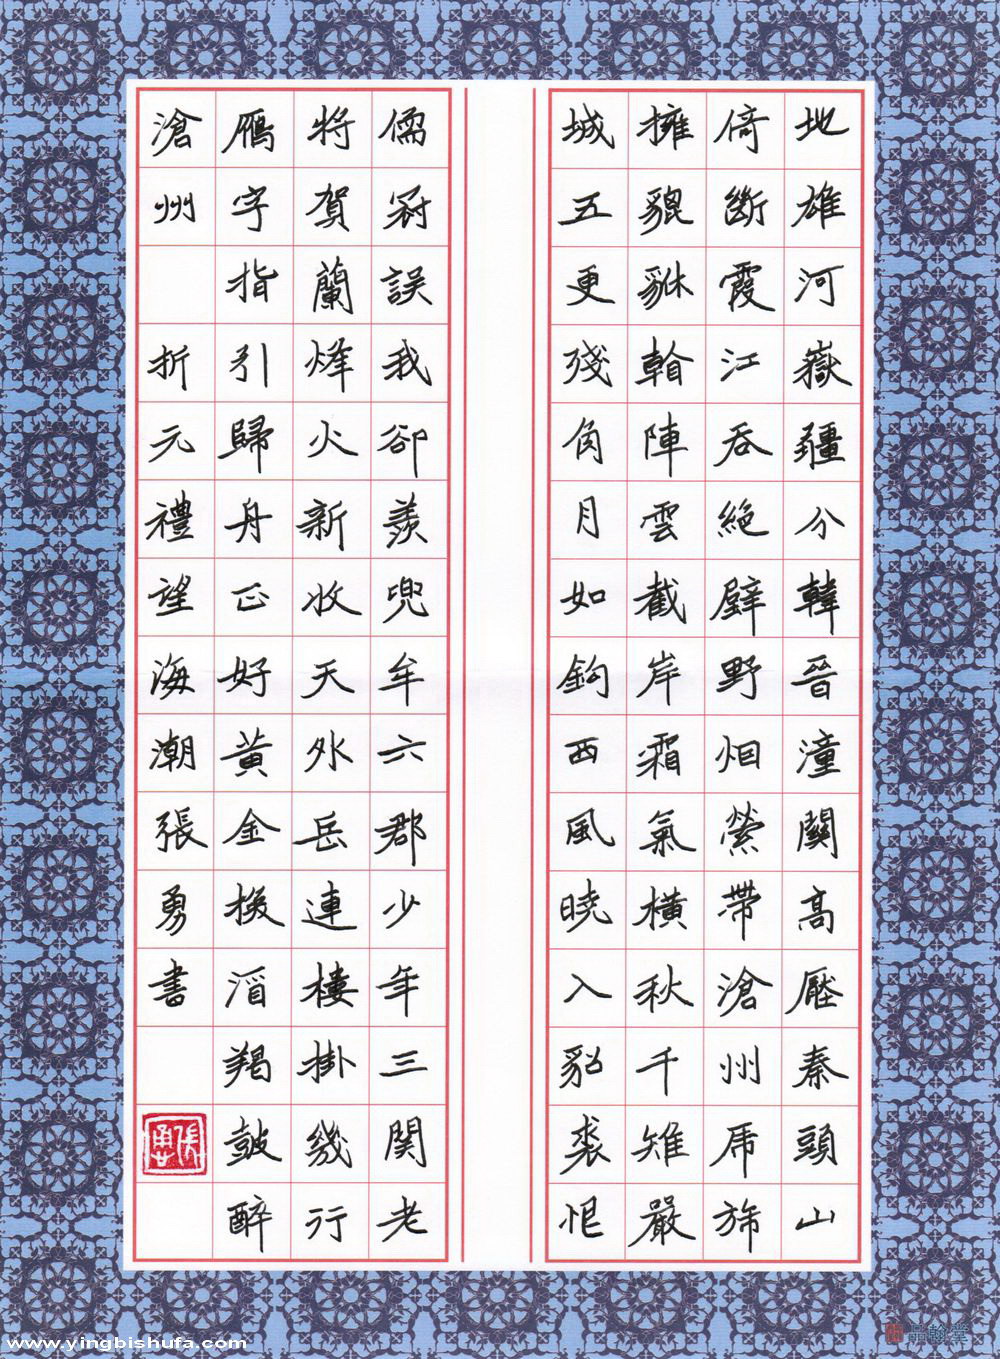 地雄河嶽疆分韓晉潼關高壓秦頭山
倚斷霞江吞絕壁野烟縈帶滄州虎旆
擁貔貅看陣雲截岸霜氣橫秋千雉嚴
城五更殘角月如鉤西風曉入貂裘恨
儒冠誤我卻羨兜牟六郡少年三關老
將賀蘭烽火新收天外岳連樓掛幾行
鴈字指引歸舟正好黃金換酒羯鼓醉
滄州 折元禮望海潮張勇書
張勇
www.yingbishufa.com
品翰堂